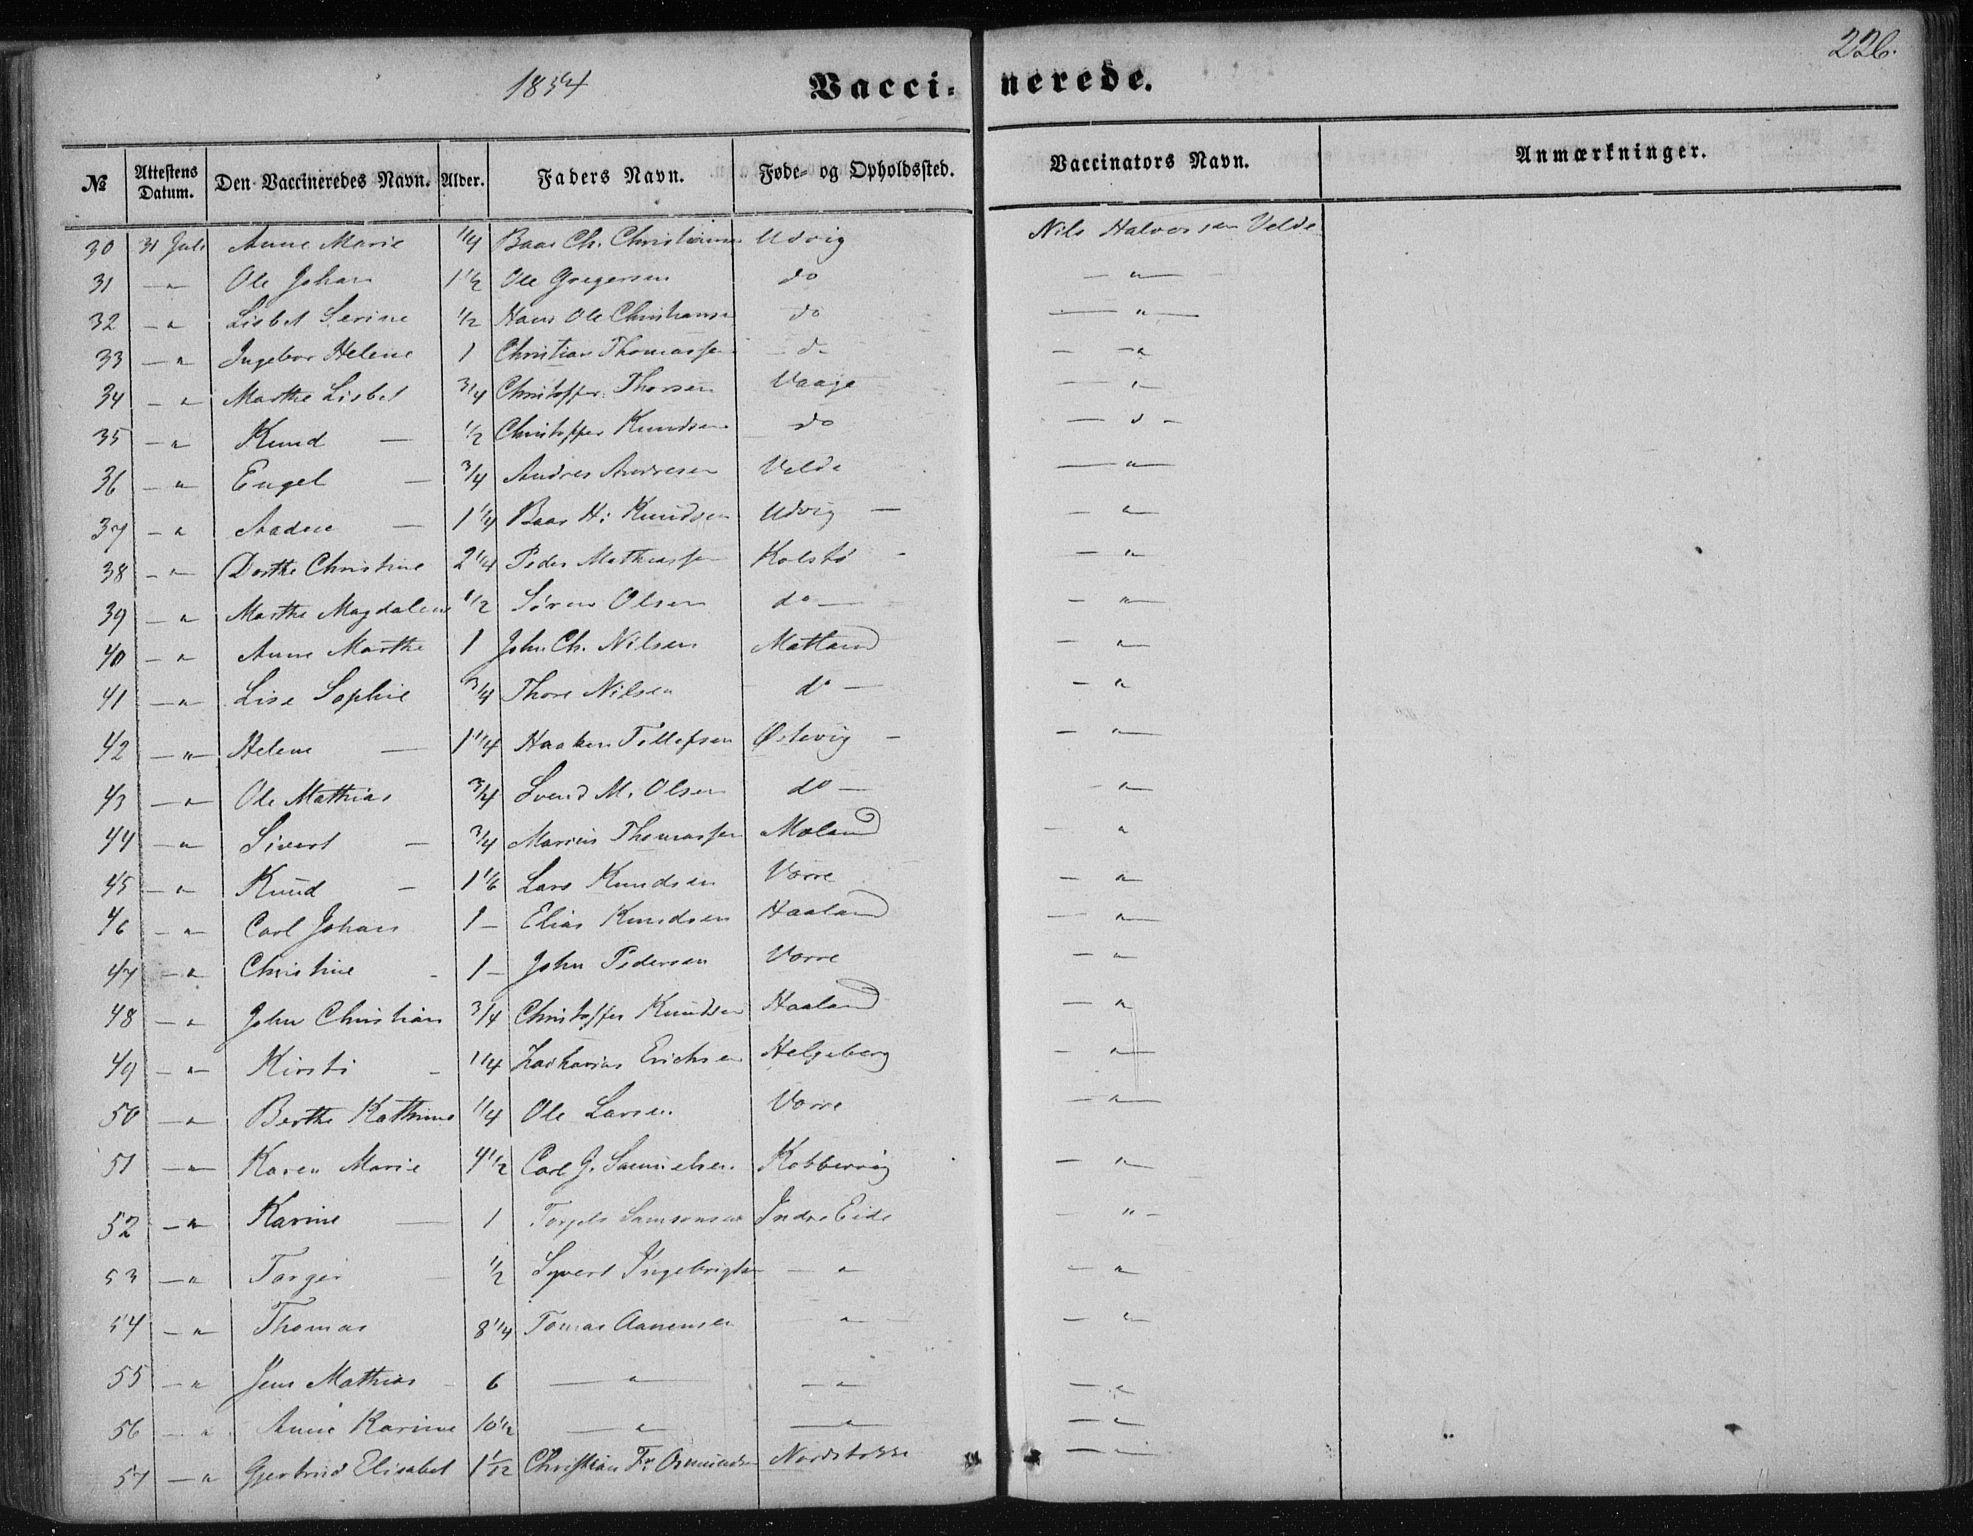 226.
1854 Vacci- nerede.
№ Attestens Datum. Den Vaccineredes Navn. Alder. Faders Navn. Føde- og Opholdssted. Vaccinators Navn. Anmærkninger.
30 31 Juli Anne Marie 1/4 Baar Ch. Christiansen Udvig Nils Halvorsen Velde
31 — " Ole Johan 1 1/2 Ole Gregersen do — " —
32 — " Lisbet Serine 1/2 Hans Ole Christiansen do — " —
33 — " Ingebor Helene 1 Christian Thomassen do — "
34 — " Marthe Lisbet 3/4 Christoffer Thorsen Vaage — " —
35 — " Knud — 1/2 Christoffer Knudsen do — " —
36 — " Engel — 3/4 Andres Andresen Velde — " —
37 — " Aadne — 1 1/4 Baar H. Knudsen Udvig — — " —
38 — " Dorthe Christine 2 1/4 Peder Mathiassen Kolstø — " —
39 — " Marthe Magdalene 1/2 Søren Olsen do — — " —
40 — " Anne Marthe 1 John Ch. Nilsen Matland — " —
41 — " Lise Sophie 3/4 Thore Nilsen do — — " —
42 — " Helene — 1 1/4 Haaken Tellefsen Østevig — — " —
43 — " Ole Mathias 3/4 Svend M. Olsen do — — " —
44 — " Sivert — 3/4 Marius Thomassen Moland — "
45 — " Knud — 1 1/6 Lars Knudsen Vorre — " —
46 — " Carl Johan 1 — Elias Knudsen Haaland — " —
47 — " Christine - 1 — John Pedersen Vorre — " —
48 — " John Christian 3/4 Christoffer Knudsen Haaland — " —
49 — " Kirsti - 1 1/4 Zacharias Erichsen Helgeberg — " —
50 — " Berthe Kathrine 1/4 Ole Larsen Vorre — " —
51 — " Karen Marie 4 1/2 Carl G. Samuelsen Kobbervig — " —
52 — " Karine — 1 Torgels Samsonsen Indre Eide — " —
53 — " Torger — 1/2 Syvert Ingebrigtsen — " — " —
54 — " Thomas 8 1/4 Tomas Aanensen — " — — " —
55 — " Jens Mathias 6 — " — — " — — " —
56 — " Anne Karine 10 1/2 — " — — " — — " —
57 — " Gjertrud Elisabet 1 1/12 Christian Fr. Osmundsen Nordstokke — " —